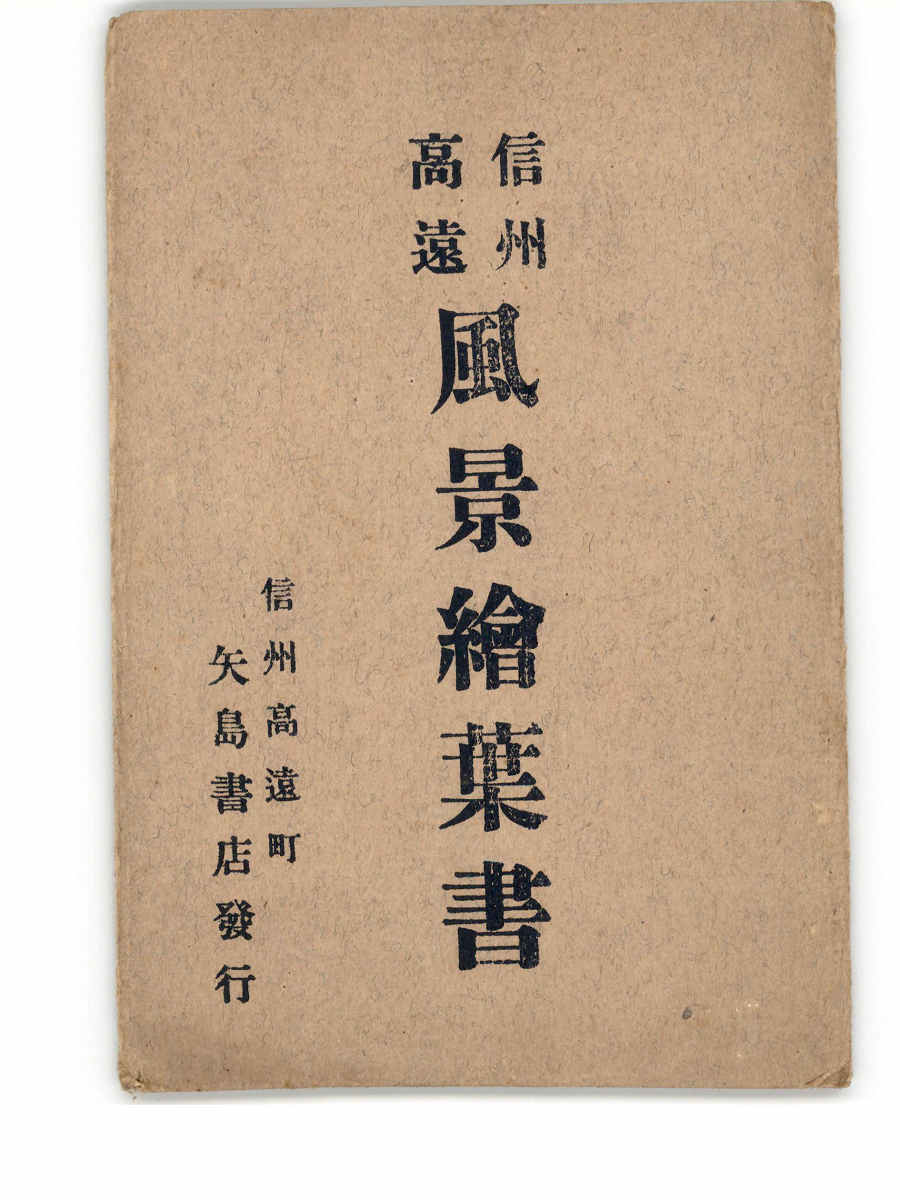 信州
高遠
風景繪葉書
信州高遠町
矢島書店發行